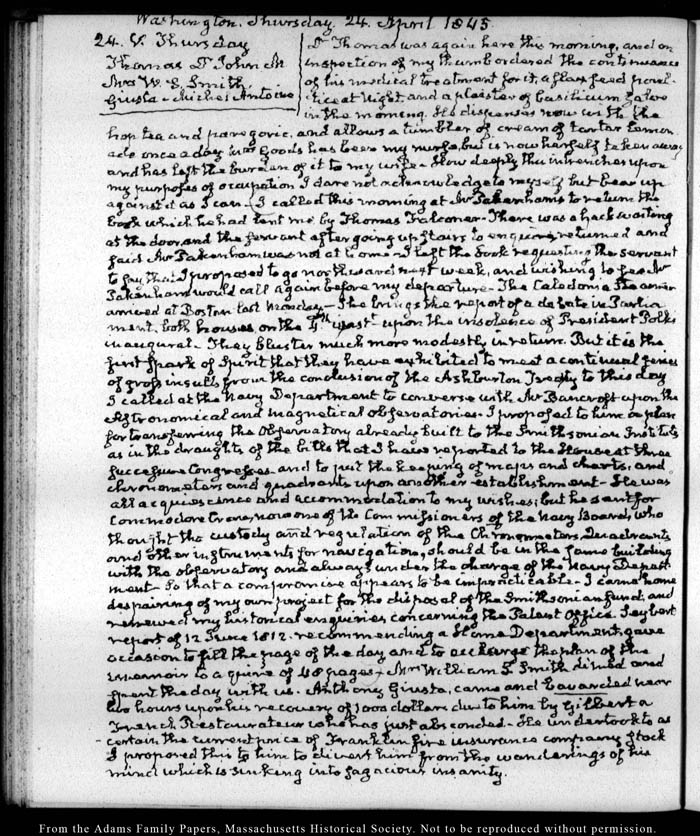 Washington. Thursday 24. April 1845.
24. V. Thursday
Thomas Dr John M
Mrs W. S. Smith
Giusta - Michel Antoine
Dr Thomas was again here this morning, and on
inspection of my thumb ordered the continuance
of his medical treatment for it, a flax seed poul-
tice at Night, and a plaister of basilicum
in the morning. He dispenses now with the
hop tea and paregoric, and allows a tumbler of cream of tartar lemon
ade once a day. Goods has been my nurse, but is now herself taken away
and has left the burden of it to my wife. How deeply this intrenches upon
my purposes of occupation I dare not acknowledge to myself but bear up
against it as I can. I called this morning at Mr Pakenham's to return the
book which he had lent me by Thomas Falconer. There was a hack waiting
at the door, and the servant after going up stairs to enquire, returned and
said Mr Pakenham was not at home. I left the book requesting the servant
to say that I proposed to go northward next week, and wishing to see Mr
Pakenham would call again before my departure. The Caledonia Steamer
arrived at Boston last Monday. She brings the report of a debate in Parlia
ment, both houses, on the 4th inst upon the insolence of President Polk's
inaugural. They bluster much more modestly in return. But it is the
first spark of Spirit that they have exhibited to meet a continual series
of gross insults from the conclusion of the Ashburton Treaty to this day
I called at the Navy Department to converse with Mr Bancroft upon the
Astronomical and magnetical observatories. I proposed to him a plan
for transferring the Observatory already built to the Smithsonian Institute
as in the draughts of the bills that I have reported to the House at three
successive Congresses and to put the keeping of maps and charts, and
chronometers and quadrants upon another establishment. He was
all acquiescence and accommodation to my wishes, but he sent for
Commodore Crane, now one of the Commissioners of the Navy Board, who
thought the custody and regulation of the Chronometers, Quadrants
and other instruments for navigation, should be in the same building
with the observatory and always under the charge of the Navy Depart
ment. So that a compromise appears to be impracticable. I came home
despairing of my own project for the disposal of the Smithsonian fund, and
renewed my historical enquiries concerning the Patent Office. Seybert
report of 12 June 1812. recommending a Home Department, gave
occasion to fill the page of the day and to enlarge the plan of the
memoir to a quire of 48 pages. Mrs William S. Smith dined and
spent the day with us. Anthony Giusta, came and near
two hours upon his recovery of 1000 dollars due to him by Gilbert a
French Restaurateur who has just absconded. He undertook to as
certain the current price of Franklin fire insurance company Stock
I proposed this to him to divert him from the wanderings of his
mind which is sinking into sagacious insanity.
From the Adams Family Papers, Massachusetts Historical Society. Not to be reproduced without permission.